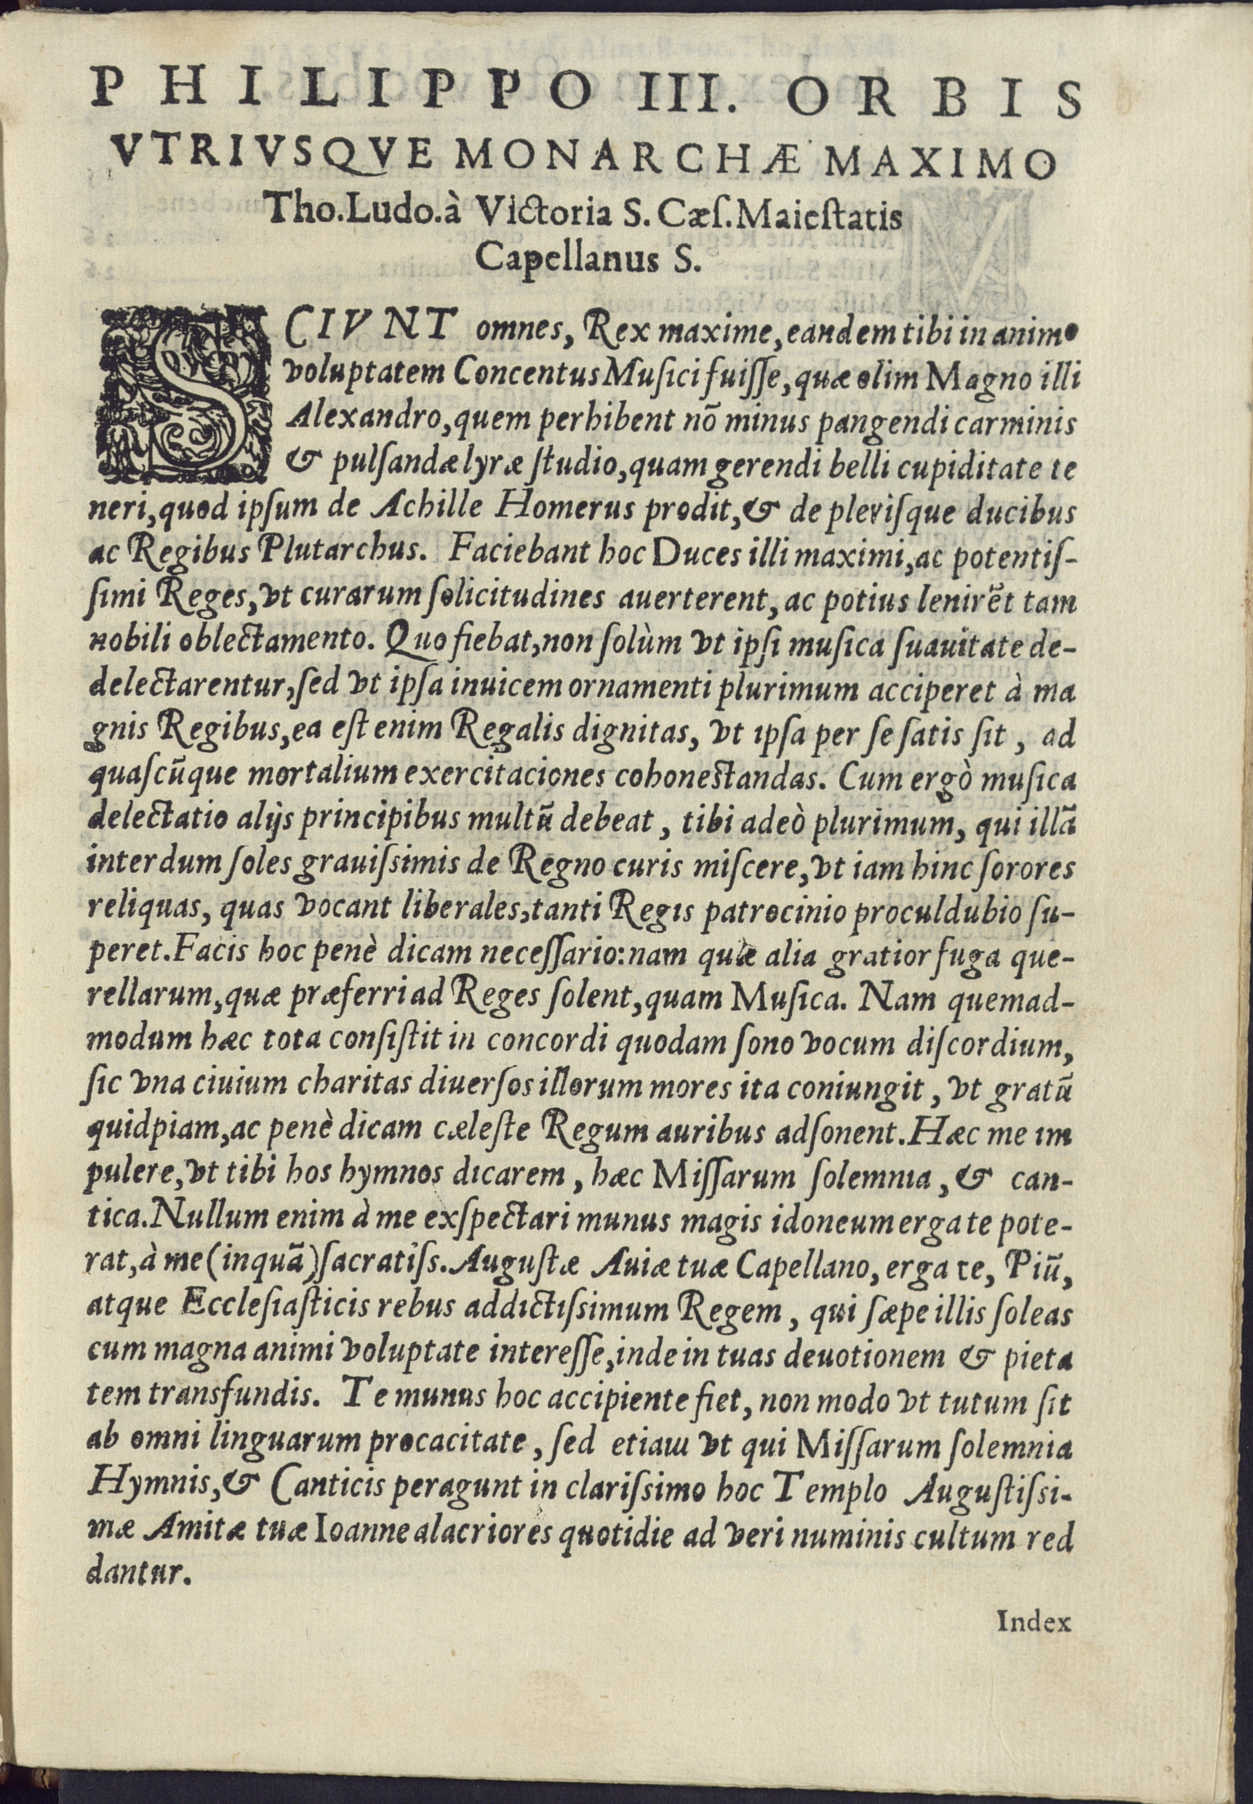 PHILIPPO III. ORBIS
VTRIVSQVE MONARCHÆ MAXIMO
Tho. Ludo. à Victoria S. Cæſ. Maieſtatis
Capellanus S.
SCIVNT omnes, Rex maxime, eandem tibi in animo
voluptatem Concentus Muſici fuiſſe, quæ olim Magno illi
Alexandro, quem perhibent nõ minus pangendi carminis
& pulſandæ lyræ ſtudio, quam gerendi belli cupiditate te
neri, quod ipſum de Achille Homerus prodit, & de pleriſque ducibus
ac Regibus Plutarchus. Faciebant hoc Duces illi maximi, ac potentiſ-
ſimi Reges, vt curarum ſolicitudines auerterent, ac potius lenirẽt tam
nobili oblectamento. Quo fiebat, non ſolùm vt ipſi muſica ſuauitate de-
delectarentur, ſed vt ipſa inuicem ornamenti plurimum acciperet à ma
gnis Regibus, ea eſt enim Regalis dignitas, vt ipſa per ſe ſatis ſit, ad
quaſcũque mortalium exercitaciones cohoneſtandas. Cum ergò muſica
delectatio alijs principibus multũ debeat, tibi adeò plurimum, qui illã
interdum ſoles grauiſsimis de Regno curis miſcere, vt iam hinc ſorores
reliquas, quas vocant liberales, tanti Regis patrocinio proculdubio ſu-
peret. Facis hoc penè dicam neceſſario: nam quæ alia gratior fuga que-
rellarum, quæ præferri ad Reges ſolent, quam Muſica. Nam quemad-
modum hæc tota conſiſtit in concordi quodam ſono vocum diſcordium,
ſic vna ciuium charitas diuerſos illorum mores ita coniungit, vt gratũ
quidpiam, ac penè dicam cæleſte Regum auribus adſonent. Hæc me im
pulere, vt tibi hos hymnos dicarem, hæc Miſſarum ſolemnia, & can-
tica. Nullum enim à me exſpectari munus magis idoneum erga te pote-
rat, à me (inquã) ſacratiſs. Auguſtæ Auiæ tuæ Capellano, erga te, Piũ,
atque Eccleſiaſticis rebus addictiſsimum Regem, qui ſæpe illis ſoleas
cum magna animi voluptate intereſſe, inde in tuas deuotionem & pieta
tem transfundis. Te munus hoc accipiente fiet, non modo vt tutum ſit
ab omni linguarum procacitate, ſed etiam vt qui Miſſarum ſolemnia
Hymnis, & Canticis peragunt in clariſsimo hoc Templo Auguſtiſsi-
mæ Amitæ tuæ Ioannealacriores quotidie ad veri numinis cultum red
dantur.
Index